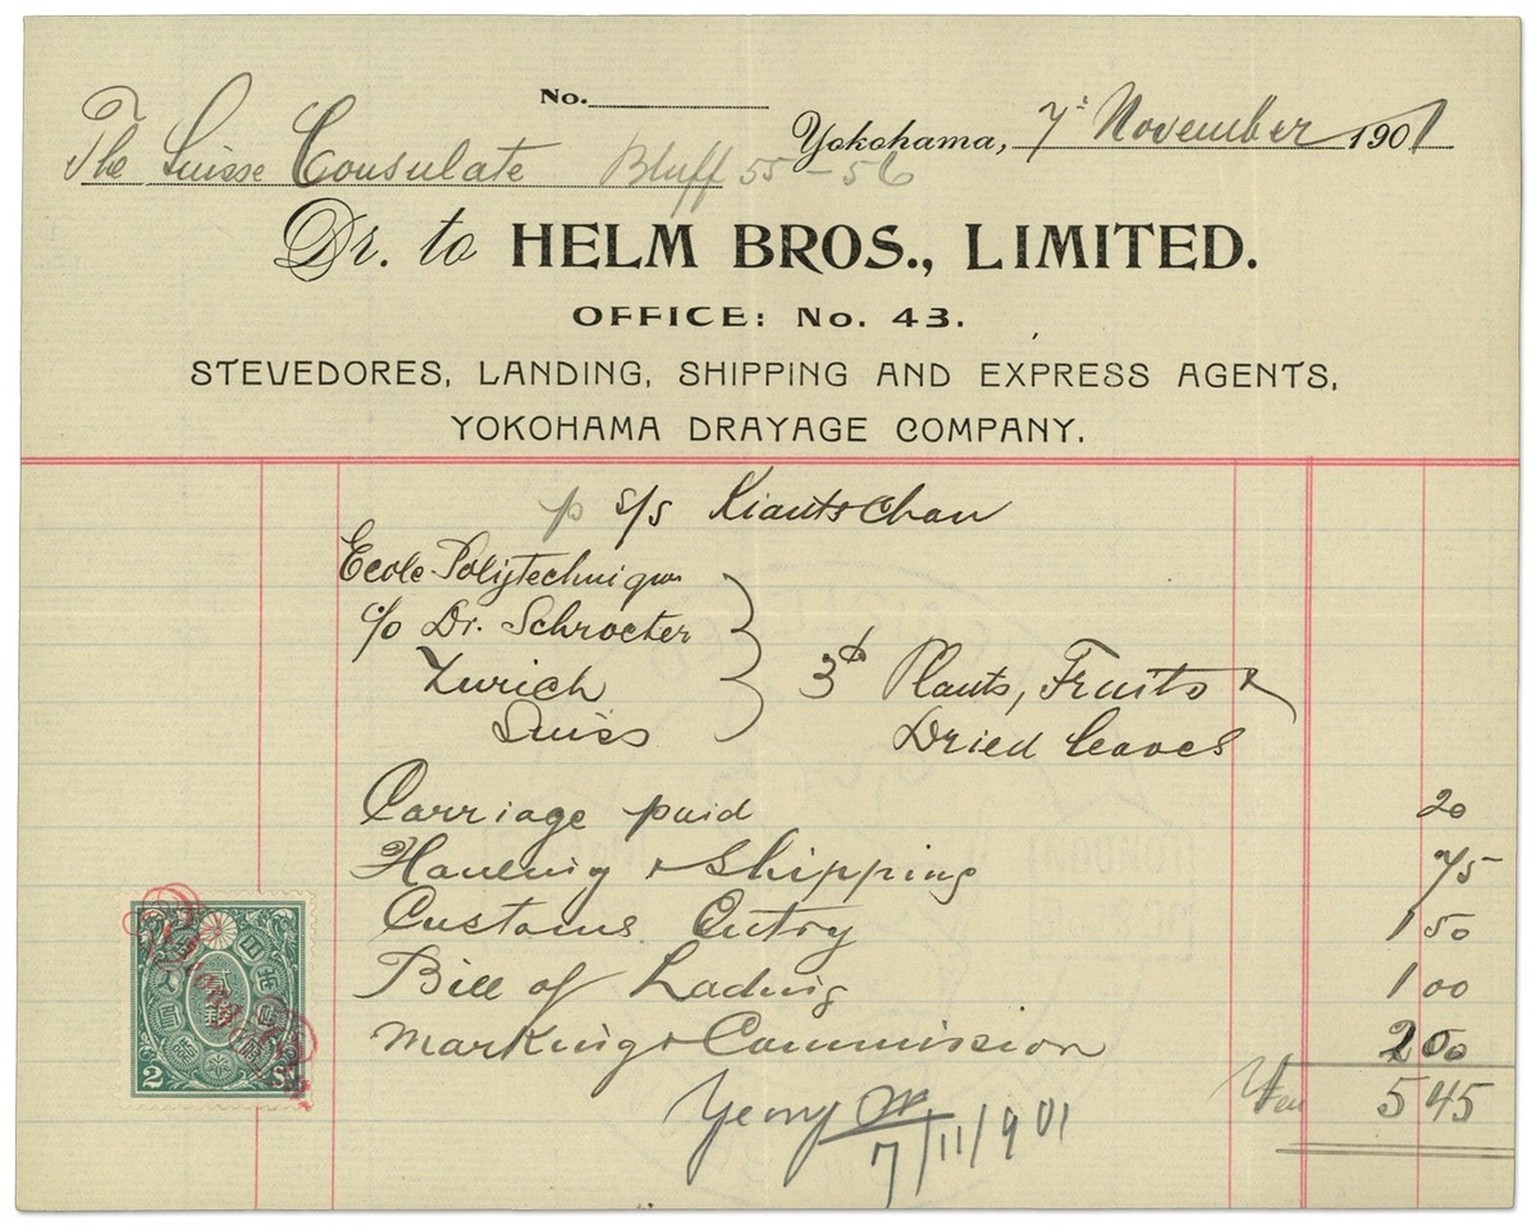 No.
Yokohama, 7: November 1901
The Suisse Consulate Bluff 55-56
Dr. to HELM BROS., LIMITED.
OFFICE: No. 43.
STEVEDORES, LANDING, SHIPPING AND EXPRESS AGENTS,
YOKOHAMA DRAYAGE COMPANY.
p s/s Kiautschau
Ecole Polytechnique
c/o Dr. Schroeter
Zurich
Suiss
3 Plants, Fruits &
Dried leaves
Carriage paid 20
Hauling & Shipping 75
Customs Entry 1 50
Bill of Lading 1 00
Marking & Commission 2 00
Yen 5 45
7/11/901
2 Sn